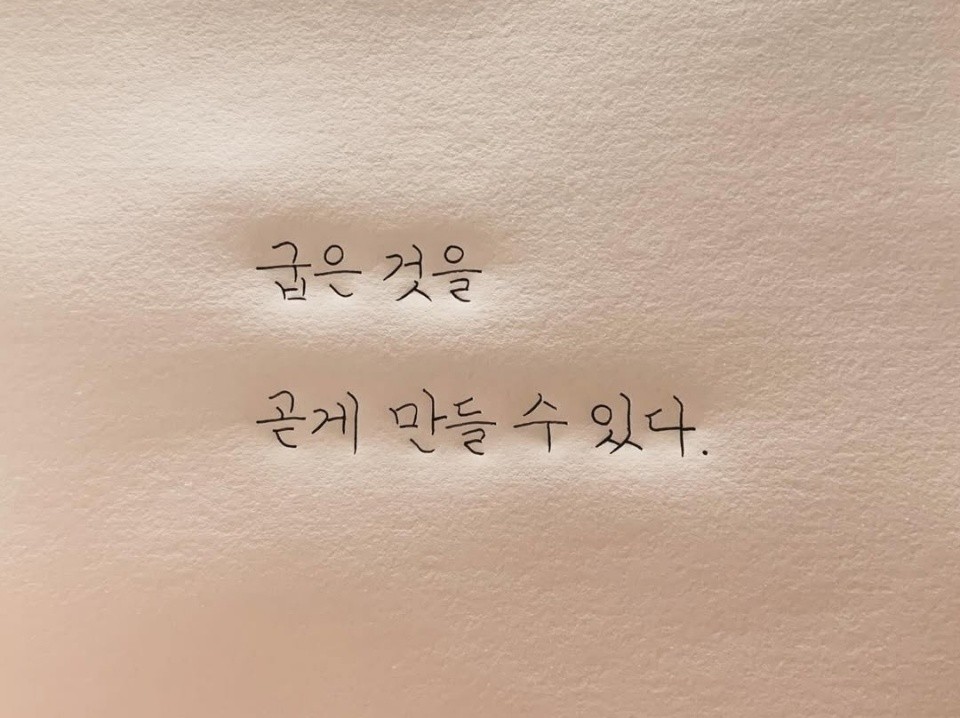 굽은 것을
곧게 만들 수 있다.